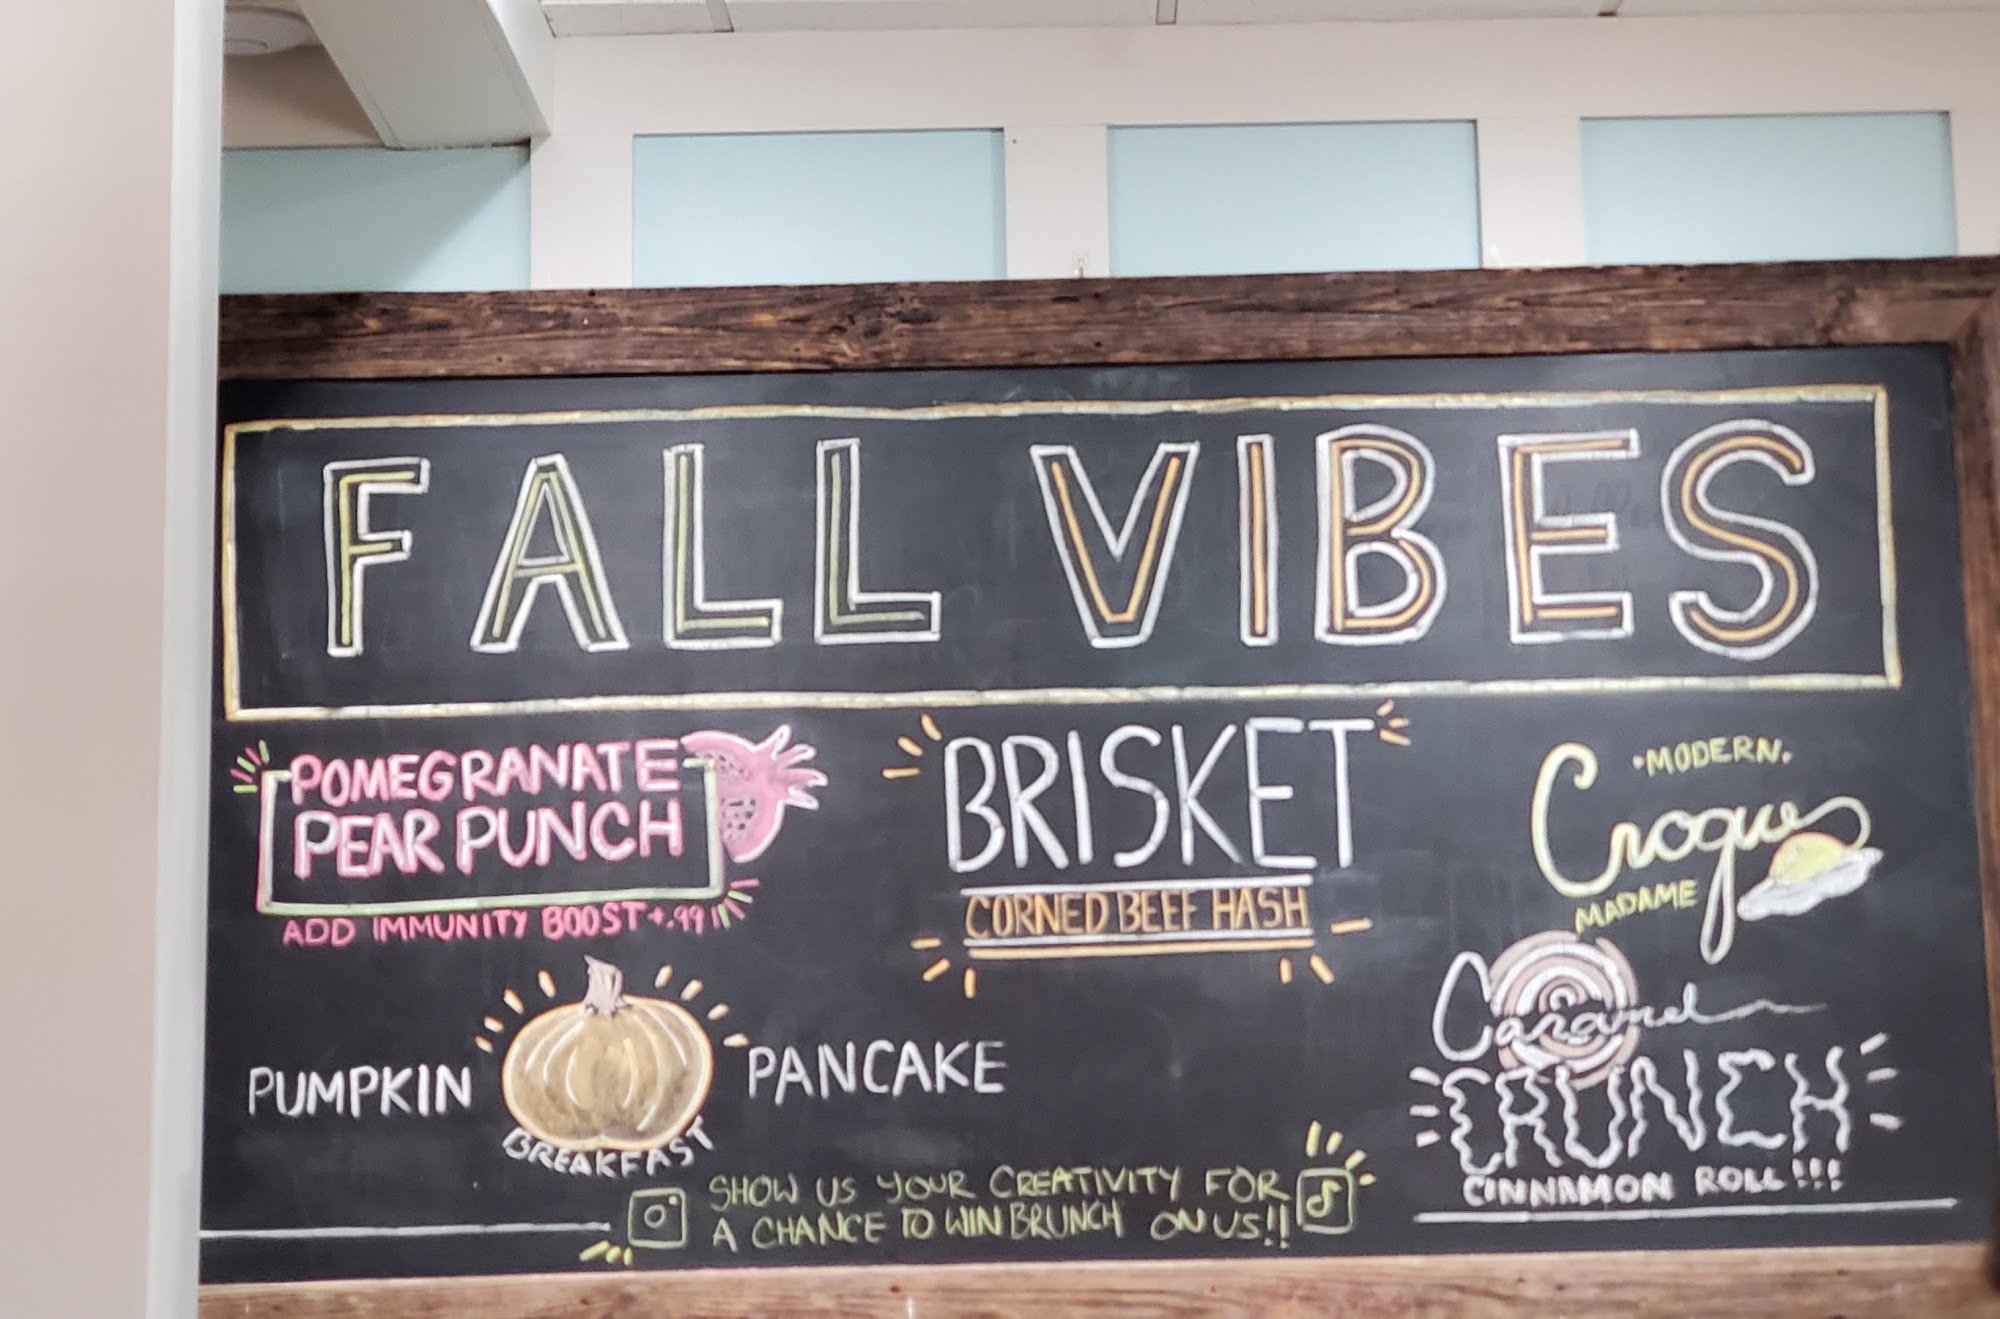 FALL VIBES
POMEGRANATE
PEAR PUNCH
ADD IMMUNITY BOOST +.99
BRISKET
CORNED BEEF HASH
•MODERN.
Croque
MADAME
PUMPKIN PANCAKE
BREAKFAST
Caramel
CRUNCH
CINNAMON ROLL!!!
SHOW US YOUR CREATIVITY FOR
A CHANCE TO WIN BRUNCH ON US!!